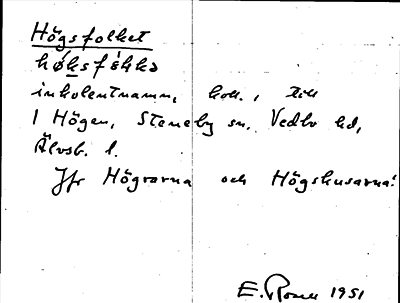 Högsfolket
høksfókkə
inkolentnamn, koll., till
1 Högen, Steneby sn, Vedbo hd,
Älvsb. l.
Jfr Högrarna och Högshusarna!
E. Rosell 1951